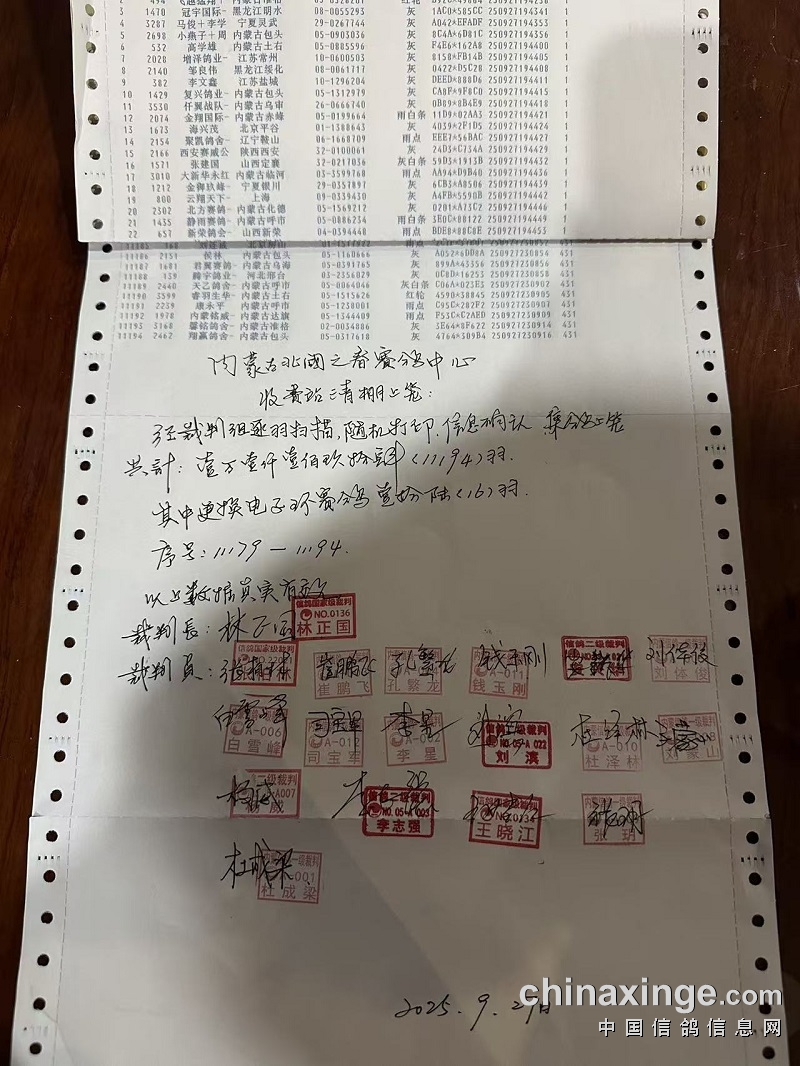 3 1470 冠宇国际- 黑龙江明水 08-0055293 灰 1AC0*585CC 250927194341 1
4 3287 马俊+李学 宁夏灵武 29-0267744 灰 A042*EFADF 250927194353 1
5 2698 小燕子+周 内蒙古包头 05-0903036 灰 8C4A*6D81C 250927194355 1
6 532 高学雄 内蒙古土右 05-0885595 灰 F4E6*162A8 250927194400 1
7 2028 增泽鸽业- 江苏常州 10-0600503 灰 8158*FB14B 250927194405 1
8 2140 邹良伟 黑龙江绥化 08-0061717 灰 0422*D5C28 250927194408 1
9 382 李文鑫 江苏盐城 10-1296204 灰 DEED*888D6 250927194411 1
10 1429 复兴鸽业- 内蒙古包头 05-1312979 灰 CA8F*9F8C0 250927194415 1
11 3530 仟翼战队- 内蒙古乌审 26-0666740 灰 0B89*8B4E9 250927194418 1
12 2074 金翔国际- 内蒙古赤峰 05-0199664 雨白条 11D9*02AA3 250927194421 1
13 1673 海兴茂 北京平谷 01-1388643 灰 4039*2F1D5 250927194424 1
14 2154 聚凯鸽舍- 辽宁鞍山 06-1668709 雨点 EEE7*56BAC 250927194427 1
15 2166 西安赛威公 陕西西安 32-0100061 灰 24D3*C734A 250927194429 1
16 1571 张建国 山西定襄 32-0217036 灰白条 59D3*1913B 250927194432 1
17 3010 大新华永红 内蒙古临河 03-3599768 雨点 AA94*D9B40 250927194436 1
18 1212 金御玖峰- 宁夏银川 29-0357897 灰 6CB3*A8506 250927194439 1
19 800 云翔天下- 上海 09-0339430 灰 A4FB*5590B 250927194441 1
20 2302 北方赛鸽- 内蒙古化德 05-1569212 灰 0201*A73C2 250927194446 1
21 1435 静雨赛鸽- 内蒙古呼市 05-0886234 雨白条 3E0C*88122 250927194449 1
22 657 新荣鸽会- 山西新荣 04-0439448 雨点 BDE8*88C8E 250927194453 1
11186 2151 侯林 内蒙古包头 05-1160666 灰 A052*6DD8A 250927230854 431
11187 1681 君翼赛鸽- 内蒙古乌海 05-0391765 灰 899A*43356 250927230856 431
11188 139 腾宇鸽业- 河北邢台 03-2356029 灰 0C8D*16253 250927230859 431
11189 2440 天乙鸽舍- 内蒙古呼市 05-0064046 灰白条 C06A*023E3 250927230902 431
11190 3599 睿羽生华- 内蒙古土右 05-1515626 红轮 4590*38845 250927230905 431
11191 2239 康永平 内蒙古呼市 05-1238001 雨点 C95C*282F2 250927230907 431
11192 1978 内蒙铭威- 内蒙古达旗 05-1344409 雨点 F53C*C2AED 250927230909 431
11193 3168 馨铭鸽舍- 内蒙古准格 02-0034886 灰 3E64*8F622 250927230914 431
11194 2462 翔赢鸽舍- 内蒙古包头 05-0317618 灰 4764*309B4 250927230916 431
内蒙古北国之春赛鸽中心
收费站清棚上笼:
经裁判组逐羽扫描,随机打印,信息确认,集鸽上笼
共计:壹万壹仟壹佰玖拾肆(11194)羽.
其中更换电子环赛鸽壹拾陆(16)羽.
序号:11179—11194.
以上数据真实有效
裁判长:林正国
信鸽国家级裁判
NO.0136
林正国
裁判员: 崔鹏飞 孔繁龙 钱玉刚 刘体俊
崔鹏飞 孔繁龙 A-011 钱玉刚 信鸽二级裁判 刘体俊
白雪峰 司宝军 李星 刘滨 杜泽林
A-006 白雪峰 A-012 司宝军 李星 信鸽二级裁判 NO.05-A 022 刘滨 A-010 杜泽林 刘家山
杨威 李志强
二级裁判 A007 杨威 信鸽二级裁判 NO.05-A 003 李志强 NO.0134 王晓江 张玥
杜成梁
一级裁判 001 杜成梁
2025.9.27日
chinaxinge.com
中国信鸽信息网